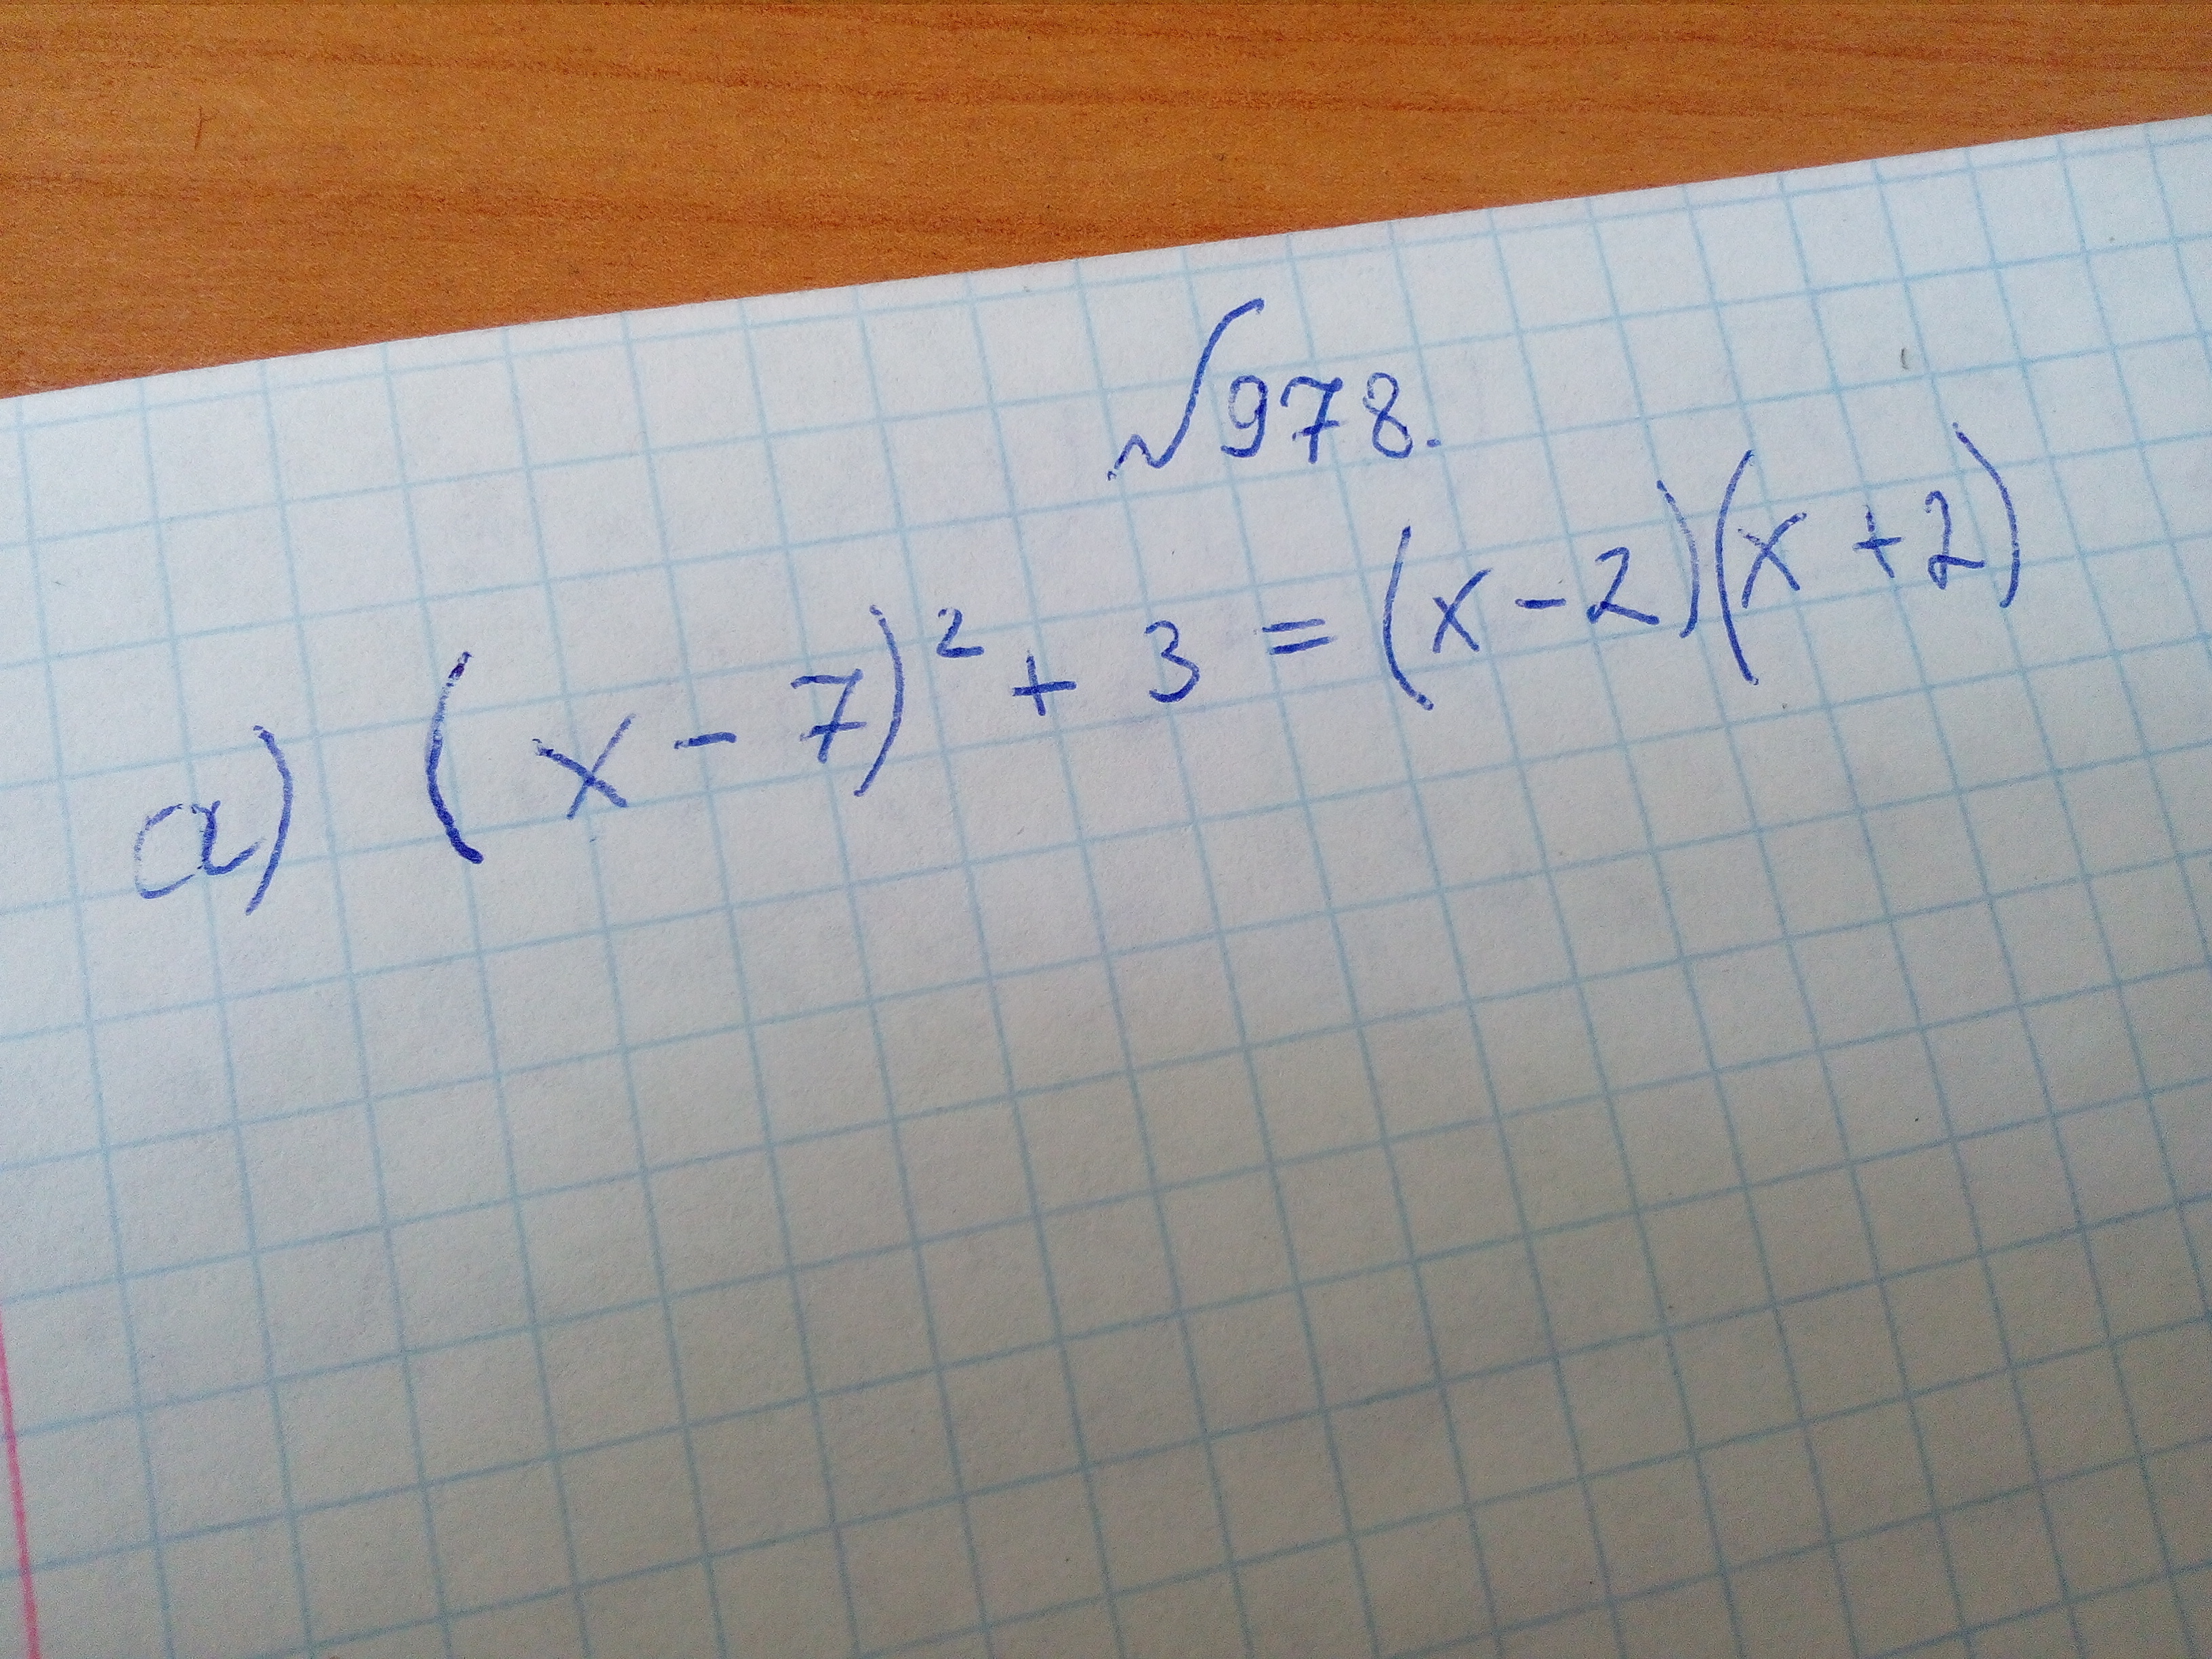 №978.
а) (x - 7)² + 3 = (x - 2)(x + 2)